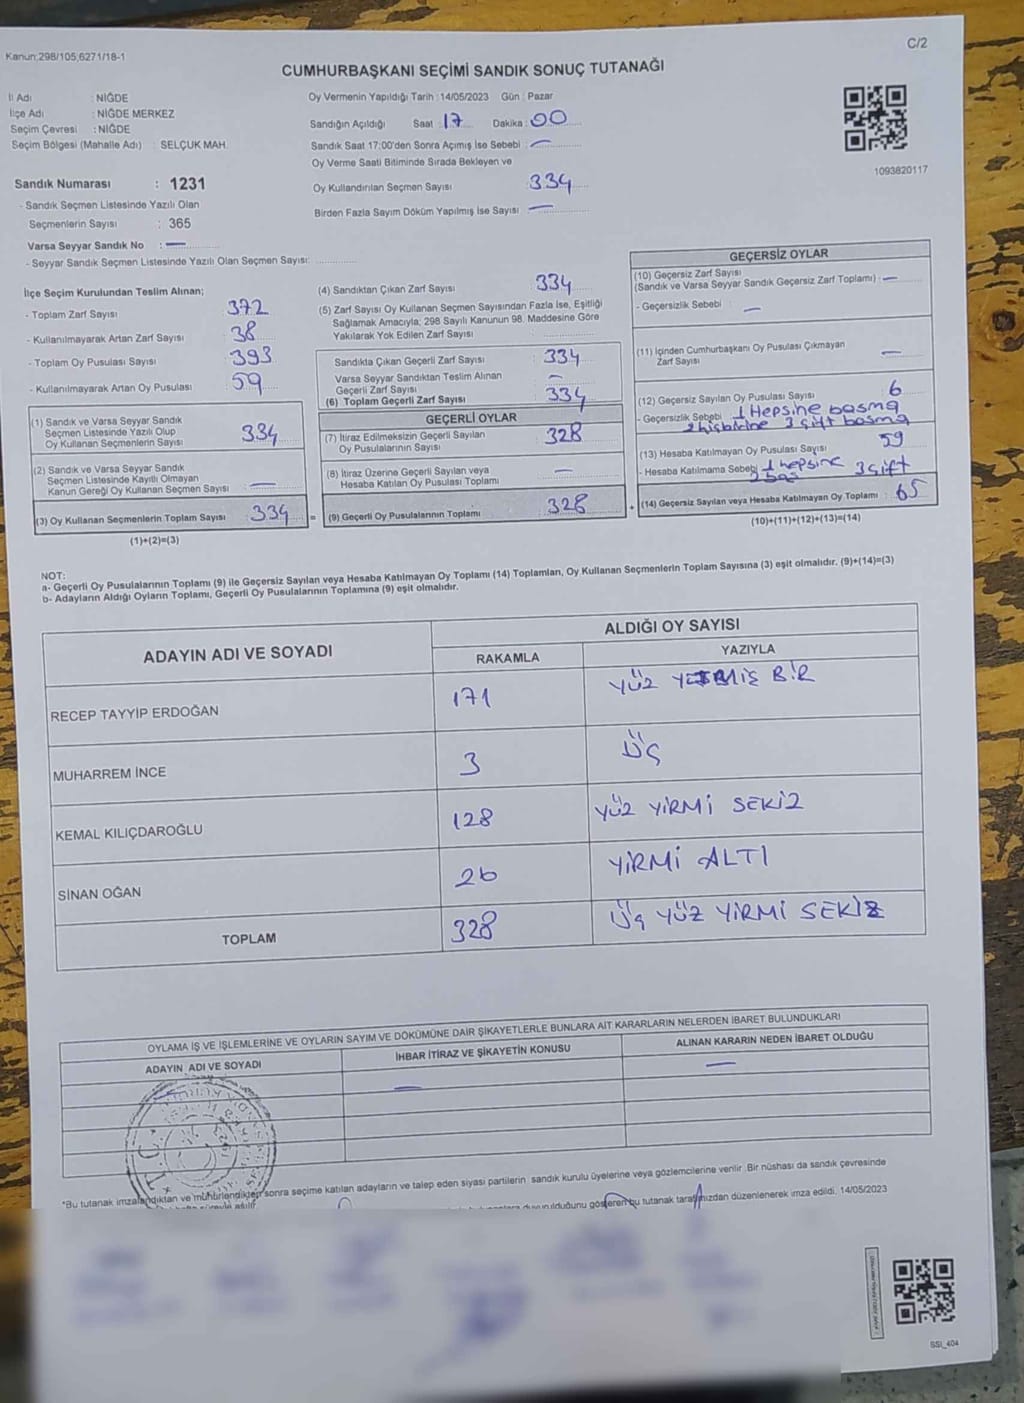 Kanun;298/105;6271/18-1
C/2
CUMHURBAŞKANI SEÇİMİ SANDIK SONUÇ TUTANAĞI
İl Adı : NİĞDE
İlçe Adı : NİĞDE MERKEZ
Seçim Çevresi : NİĞDE
Seçim Bölgesi (Mahalle Adı) : SELÇUK MAH.
Sandık Numarası : 1231
- Sandık Seçmen Listesinde Yazılı Olan
Seçmenlerin Sayısı : 365
Varsa Seyyar Sandık No : —
- Seyyar Sandık Seçmen Listesinde Yazılı Olan Seçmen Sayısı:
Oy Vermenin Yapıldığı Tarih : 14/05/2023 Gün : Pazar
Sandığın Açıldığı Saat : 17 Dakika : 00
Sandık Saat 17:00'den Sonra Açımış İse Sebebi : —
Oy Verme Saati Bitiminde Sırada Bekleyen ve
Oy Kullandırılan Seçmen Sayısı 334
Birden Fazla Sayım Döküm Yapılmış İse Sayısı —
1093820117
İlçe Seçim Kurulundan Teslim Alınan;
- Toplam Zarf Sayısı 372
- Kullanılmayarak Artan Zarf Sayısı : 38
- Toplam Oy Pusulası Sayısı : 393
- Kullanılmayarak Artan Oy Pusulası : 59
(1) Sandık ve Varsa Seyyar Sandık
Seçmen Listesinde Yazılı Olup
Oy Kullanan Seçmenlerin Sayısı 334
(2) Sandık ve Varsa Seyyar Sandık
Seçmen Listesinde Kayıtlı Olmayan
Kanun Gereği Oy Kullanan Seçmen Sayısı —
(3) Oy Kullanan Seçmenlerin Toplam Sayısı 334
(1)+(2)=(3)
(4) Sandıktan Çıkan Zarf Sayısı 334
(5) Zarf Sayısı Oy Kullanan Seçmen Sayısından Fazla İse, Eşitliği
Sağlamak Amacıyla; 298 Sayılı Kanunun 98. Maddesine Göre
Yakılarak Yok Edilen Zarf Sayısı
Sandıkta Çıkan Geçerli Zarf Sayısı : 334
Varsa Seyyar Sandıktan Teslim Alınan
Geçerli Zarf Sayısı : —
(6) Toplam Geçerli Zarf Sayısı : 334
GEÇERLİ OYLAR
(7) İtiraz Edilmeksizin Geçerli Sayılan
Oy Pusulalarının Sayısı : 328
(8) İtiraz Üzerine Geçerli Sayılan veya
Hesaba Katılan Oy Pusulası Toplamı : —
= (9) Geçerli Oy Pusulalarının Toplamı : 328
GEÇERSİZ OYLAR
(10) Geçersiz Zarf Sayısı
(Sandık ve Varsa Seyyar Sandık Geçersiz Zarf Toplamı) : —
- Geçersizlik Sebebi : —
(11) İçinden Cumhurbaşkanı Oy Pusulası Çıkmayan
Zarf Sayısı : —
(12) Geçersiz Sayılan Oy Pusulası Sayısı : 6
- Geçersizlik Sebebi 1 Hepsine basma
2 hiçbirine 3 çift basma
(13) Hesaba Katılmayan Oy Pusulası Sayısı 59
- Hesaba Katılmama Sebebi 1 hepsine 3 çift
+ (14) Geçersiz Sayılan veya Hesaba Katılmayan Oy Toplamı : 65
(10)+(11)+(12)+(13)=(14)
NOT:
a- Geçerli Oy Pusulalarının Toplamı (9) ile Geçersiz Sayılan veya Hesaba Katılmayan Oy Toplamı (14) Toplamları, Oy Kullanan Seçmenlerin Toplam Sayısına (3) eşit olmalıdır. (9)+(14)=(3)
b- Adayların Aldığı Oyların Toplamı, Geçerli Oy Pusulalarının Toplamına (9) eşit olmalıdır.
ADAYIN ADI VE SOYADI ALDIĞI OY SAYISI
RAKAMLA YAZIYLA
RECEP TAYYİP ERDOĞAN 171 YÜZ YETMİŞ BİR
MUHARREM İNCE 3 ÜÇ
KEMAL KILIÇDAROĞLU 128 YÜZ YİRMİ SEKİZ
SİNAN OĞAN 26 YİRMİ ALTI
TOPLAM 328 ÜÇ YÜZ YİRMİ SEKİZ
OYLAMA İŞ VE İŞLEMLERİNE VE OYLARIN SAYIM VE DÖKÜMÜNE DAİR ŞİKAYETLERLE BUNLARA AİT KARARLARIN NELERDEN İBARET BULUNDUKLARI
ADAYIN ADI VE SOYADI İHBAR İTİRAZ VE ŞİKAYETİN KONUSU ALINAN KARARIN NEDEN İBARET OLDUĞU
— —
T.C.
*Bu tutanak imzalandıktan ve mühürlendikten sonra seçime katılan adayların ve talep eden siyasi partilerin sandık kurulu üyelerine veya gözlemcilerine verilir. Bir nüshası da sandık çevresinde
gösteren bu tutanak tarafımızdan düzenlenerek imza edildi. 14/05/2023
SSI_404